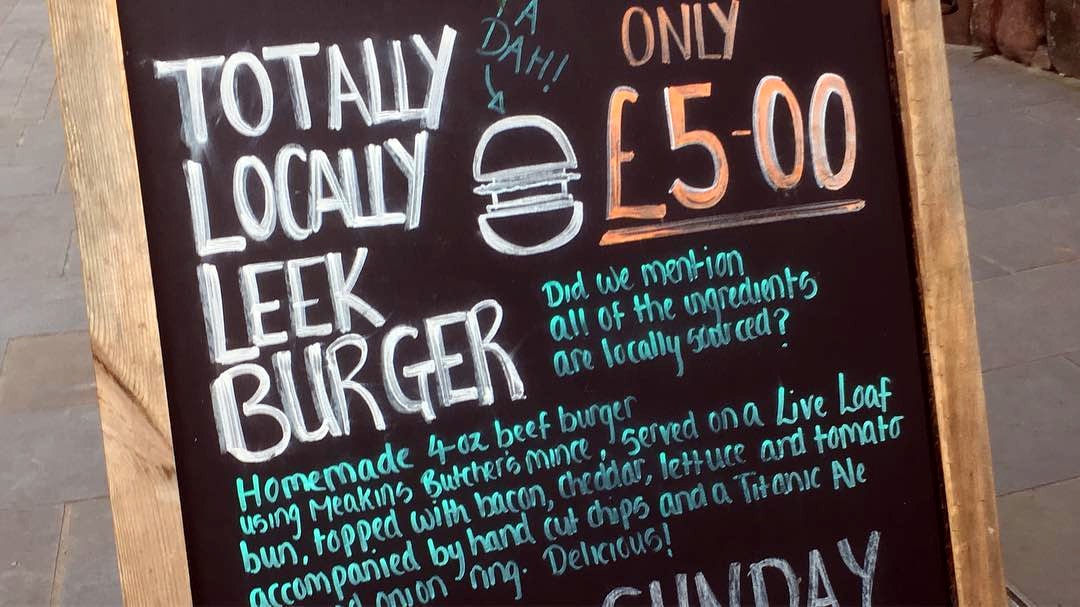 TOTALLY
LOCALLY
LEEK
BURGER
TA
DAH!
ONLY
£5-00
Did we mention
all of the ingredients
are locally sourced?
Homemade 4-oz beef burger
using Meakins Butcher's mince, served on a Live Loaf
bun, topped with bacon, cheddar, lettuce and tomato
accompanied by hand cut chips and a Titanic Ale
onion ring. Delicious!
SUNDAY